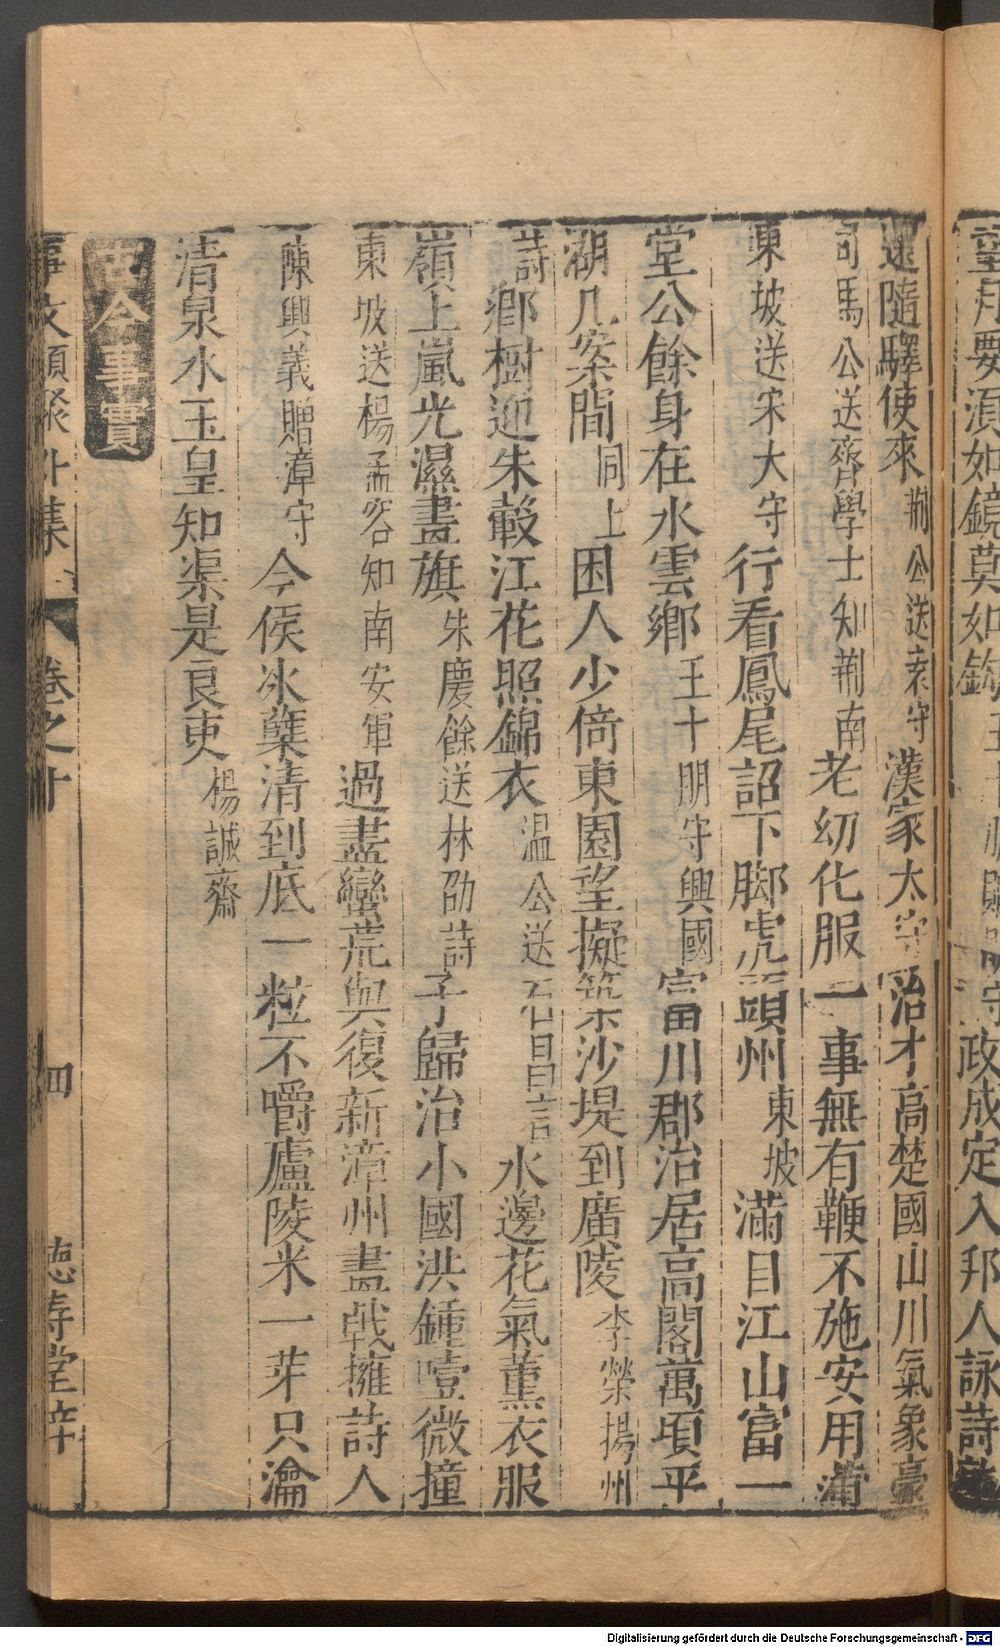 望月要須如鏡莫如鈎王十朋
政成定入邦人詠詩
還隨驛使來荆公送袁守漢家太守治才高楚國山川氣象豪
司馬公送齊學士知荆南老幼化服一事無有鞭不施安用蒲
東坡送宋大守行看鳳尾詔下脚虎頭州東坡滿目江山富一
堂公餘身在水雲鄉王十朋守興國富川郡治居高閣萬頃平
湖几案間同上困人少倚東園望擬築沙堤到廣陵李榮揚州
詩鄉樹迎朱轂江花照錦衣温公送石昌言水邊花氣薰衣服
嶺上嵐光濕畫旗朱慶餘送林劭詩子歸治小國洪鍾噎微撞
東坡送楊孟容知南安軍過盡蠻荒興復新漳州畫戟擁詩人
陳興義贈漳守今侯冰蘗清到底一粒不嚼廬陵米一芽只瀹
清泉水玉皇知渠是良吏楊誠齋
古今事實
事文類聚外集 卷之十 四 德壽堂梓
Digitalisierung gefördert durch die Deutsche Forschungsgemeinschaft - DFG